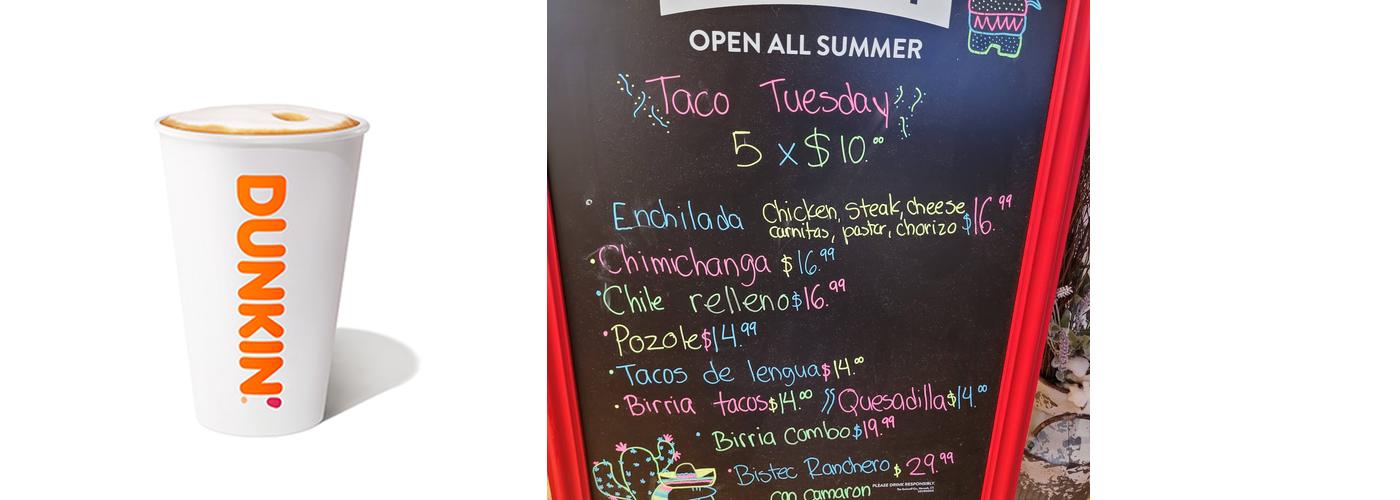 DUNKIN'
OPEN ALL SUMMER
Taco Tuesday
5 x $10.00
Enchilada Chicken, steak, cheese, $16.99
carnitas, pastor, chorizo
Chimichanga $16.99
Chile relleno $16.99
Pozole $14.99
Tacos de lengua $14.00
Birria tacos $14.00 Quesadilla $14.00
Birria Combo $19.99
Bistec Ranchero $29.99
con camaron
PLEASE DRINK RESPONSIBLY.